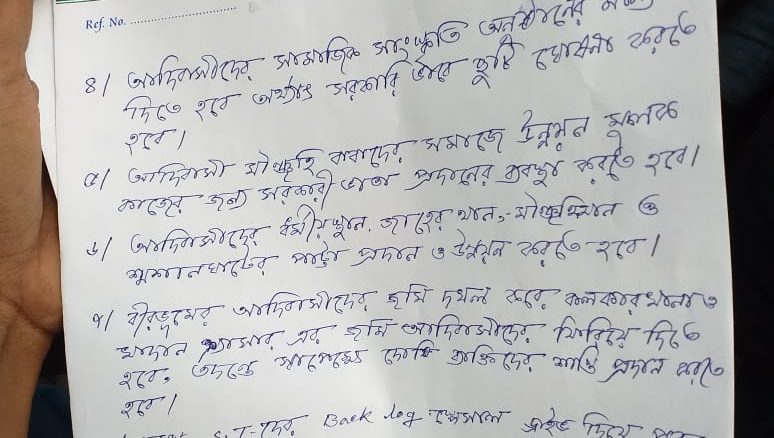 Ref. No.
৪/ আদিবাসীদের সামাজিক সাংস্কৃতি অনুষ্ঠানের
দিতে হবে অর্থাৎ সরকারি ভাবে ছুটি ঘোষনা করতে
হবে।
৫/ আদিবাসী বাবাদের সমাজে উন্নয়ন মূলক
কাজের জন্য সরকারী ভাতা প্রদানের ব্যবস্থা করতে হবে।
৬/ আদিবাসীদের ধর্মীয়স্থান, জাহের থান, ও
শ্মশানঘাটের পাট্টা প্রদান ও উন্নয়ন করতে হবে।
৭/ বীরভূমের আদিবাসীদের জমি দখল করে কলকারখানা ও
খাদান এর জমি আদিবাসীদের ফিরিয়ে দিতে
হবে, তদন্ত সাপেক্ষে দোষি ব্যক্তিদের শাস্তি প্রদান করতে
হবে।
S.T-দের Back log স্পেসাল ড্রাইভ দিয়ে